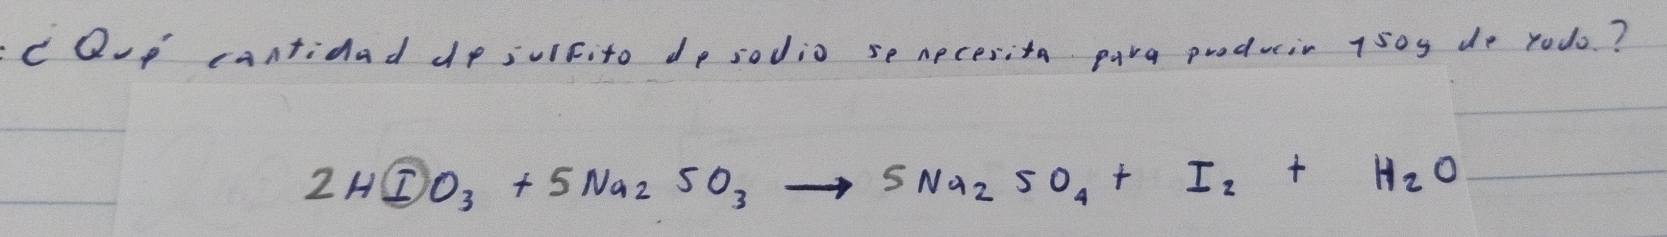 : ¿Qué cantidad de sulfito de sodio se necesita para producir 150g de yodo.?
2HIO₃ + 5Na₂SO₃ → 5Na₂SO₄ + I₂ + H₂O